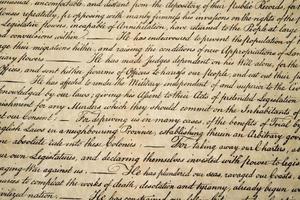 unusual, uncomfortable, and distant from the depository of their Public Records, for
ouses repeatedly, for opposing with manly firmness his invasions on the rights of the
gislative Powers, incapable of Annihilation, have returned to the People at large
nd convulsions within. — He has endeavoured to prevent the population of
ge their migrations hither, and raising the conditions of new Appropriations of La
ary powers. — He has made Judges dependent on his Will alone, for the
Offices, and sent hither swarms of Officers to harrass our people, and eat out their
— He has affected to render the Military independent of and superior to the Civil
knowledged by our laws; giving his Assent to their Acts of pretended Legislation:
ishment for any Murders which they should commit on the Inhabitants of
ut our Consent: — For depriving us in many cases, of the benefits of Trial by
nglish Laws in a neighbouring Province, establishing therein an Arbitrary gov
absolute rule into these Colonies: — For taking away our Charters, ab
our own Legislatures, and declaring themselves invested with power to legis
ging War against us. — He has plundered our seas, ravaged our Coasts,
naries to compleat the works of death, desolation and tyranny, already begun
vilized nation. — He has constrained our